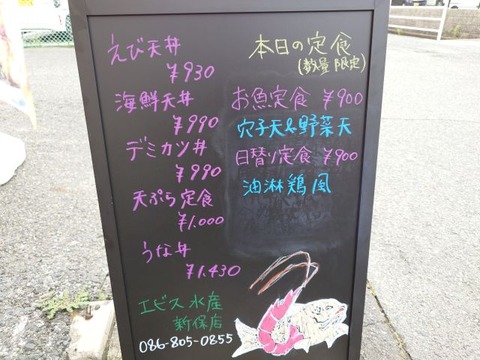 えび天丼
¥930
海鮮天丼
¥990
デミカツ丼
¥990
天ぷら定食
¥1.000
うな丼
¥1.430
エビス水産
新保店
086-805-0855
本日の定食
(数量限定)
お魚定食 ¥900
穴子天&野菜天
日替り定食 ¥900
油淋鶏風